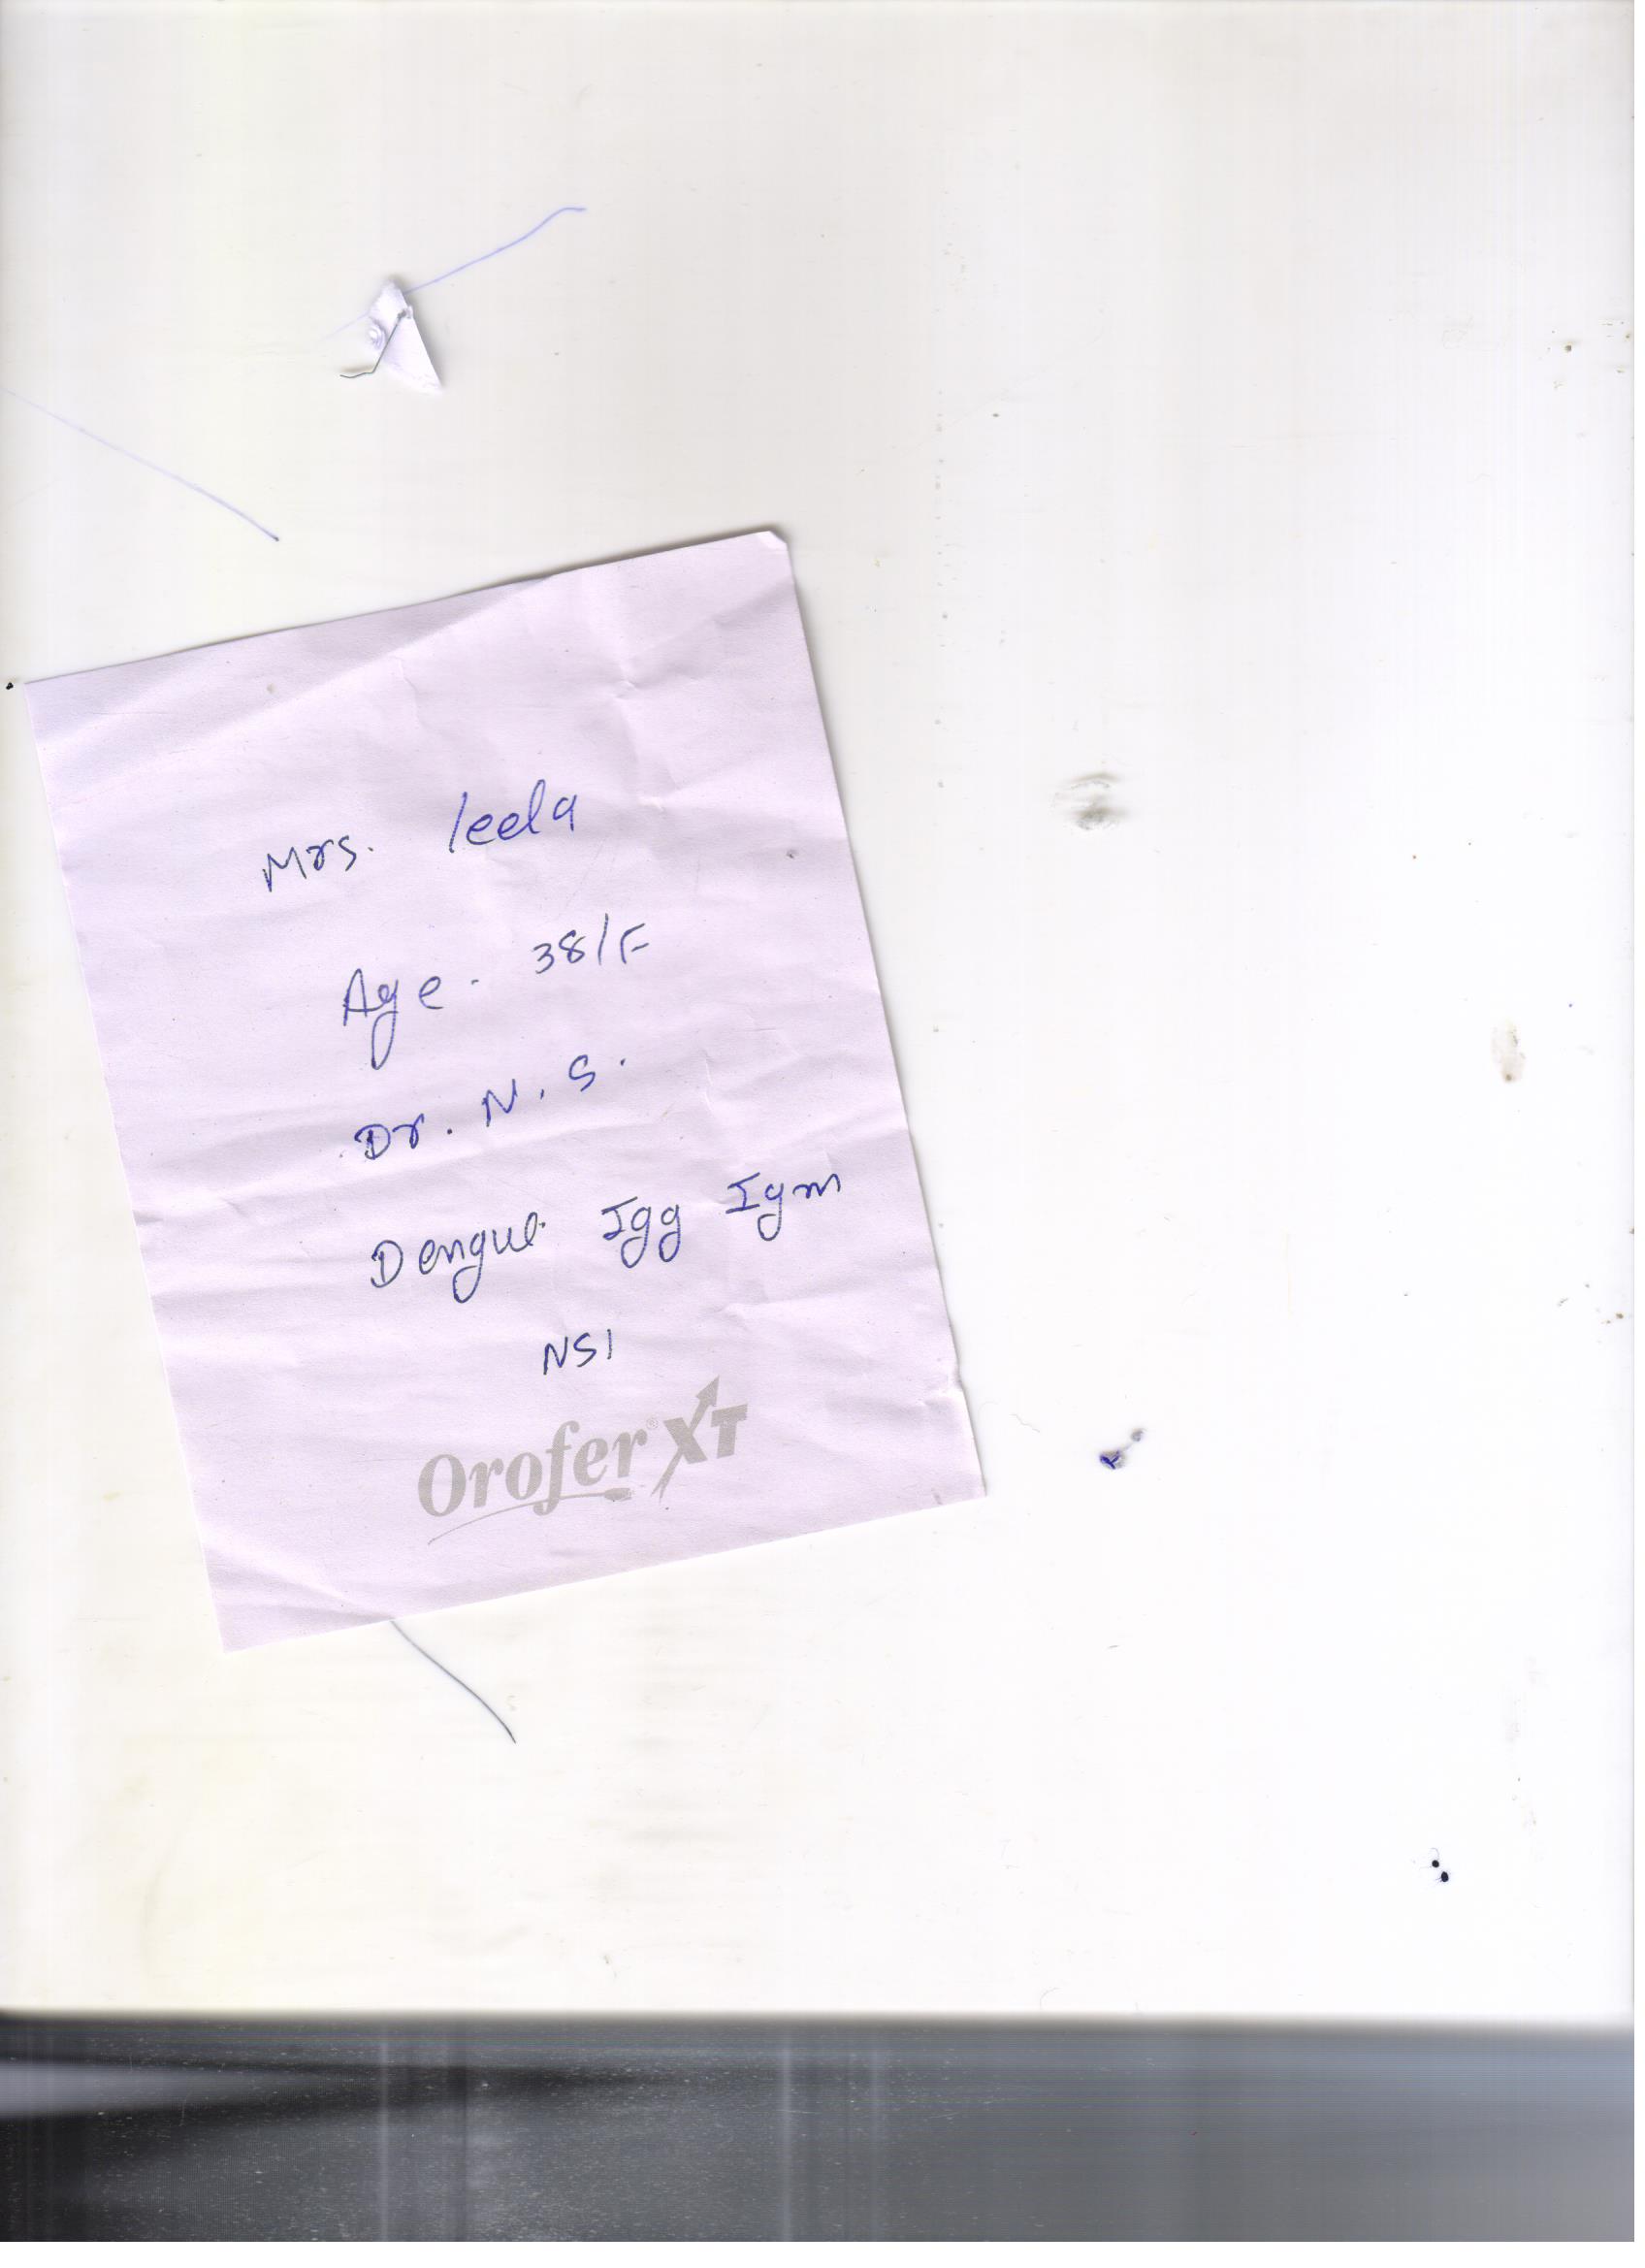 Mrs. leela
Age. 38/F
Dr. N. S.
Dengue Igg Igm
NS1
Orofer® XT